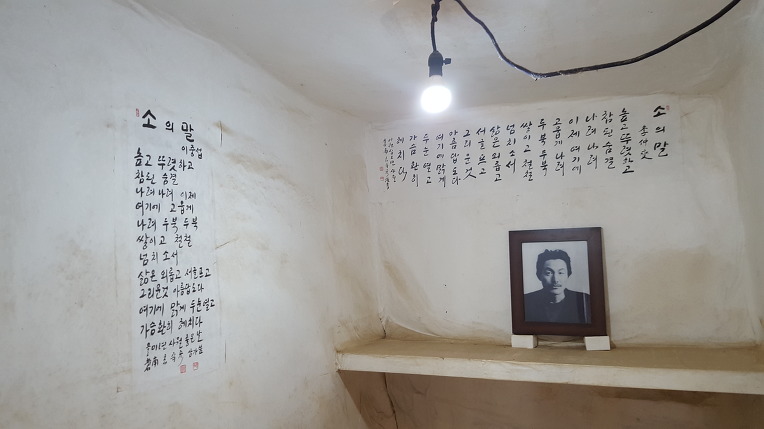 소의 말
이중섭
높고 뚜렷하고
참된 숨결
나려나려 이제
여기에 고웁게
나려 두북 두북
쌓이고 철철
넘치소서
삶은 외롭고 서글프고
그리운것 아름답도다
여기에 맑게 두눈열고
가슴환희 헤치다
소의 말
높고뚜렷하고
참된 숨결
나려 나려
이제 여기에
고웁게 나려
두북 두북
쌓이고 철철
넘치소서
삶은 외롭고
서글프고
그리운것
아름답도다
여기에 맑게
두눈 열고
가슴 환희
헤치다